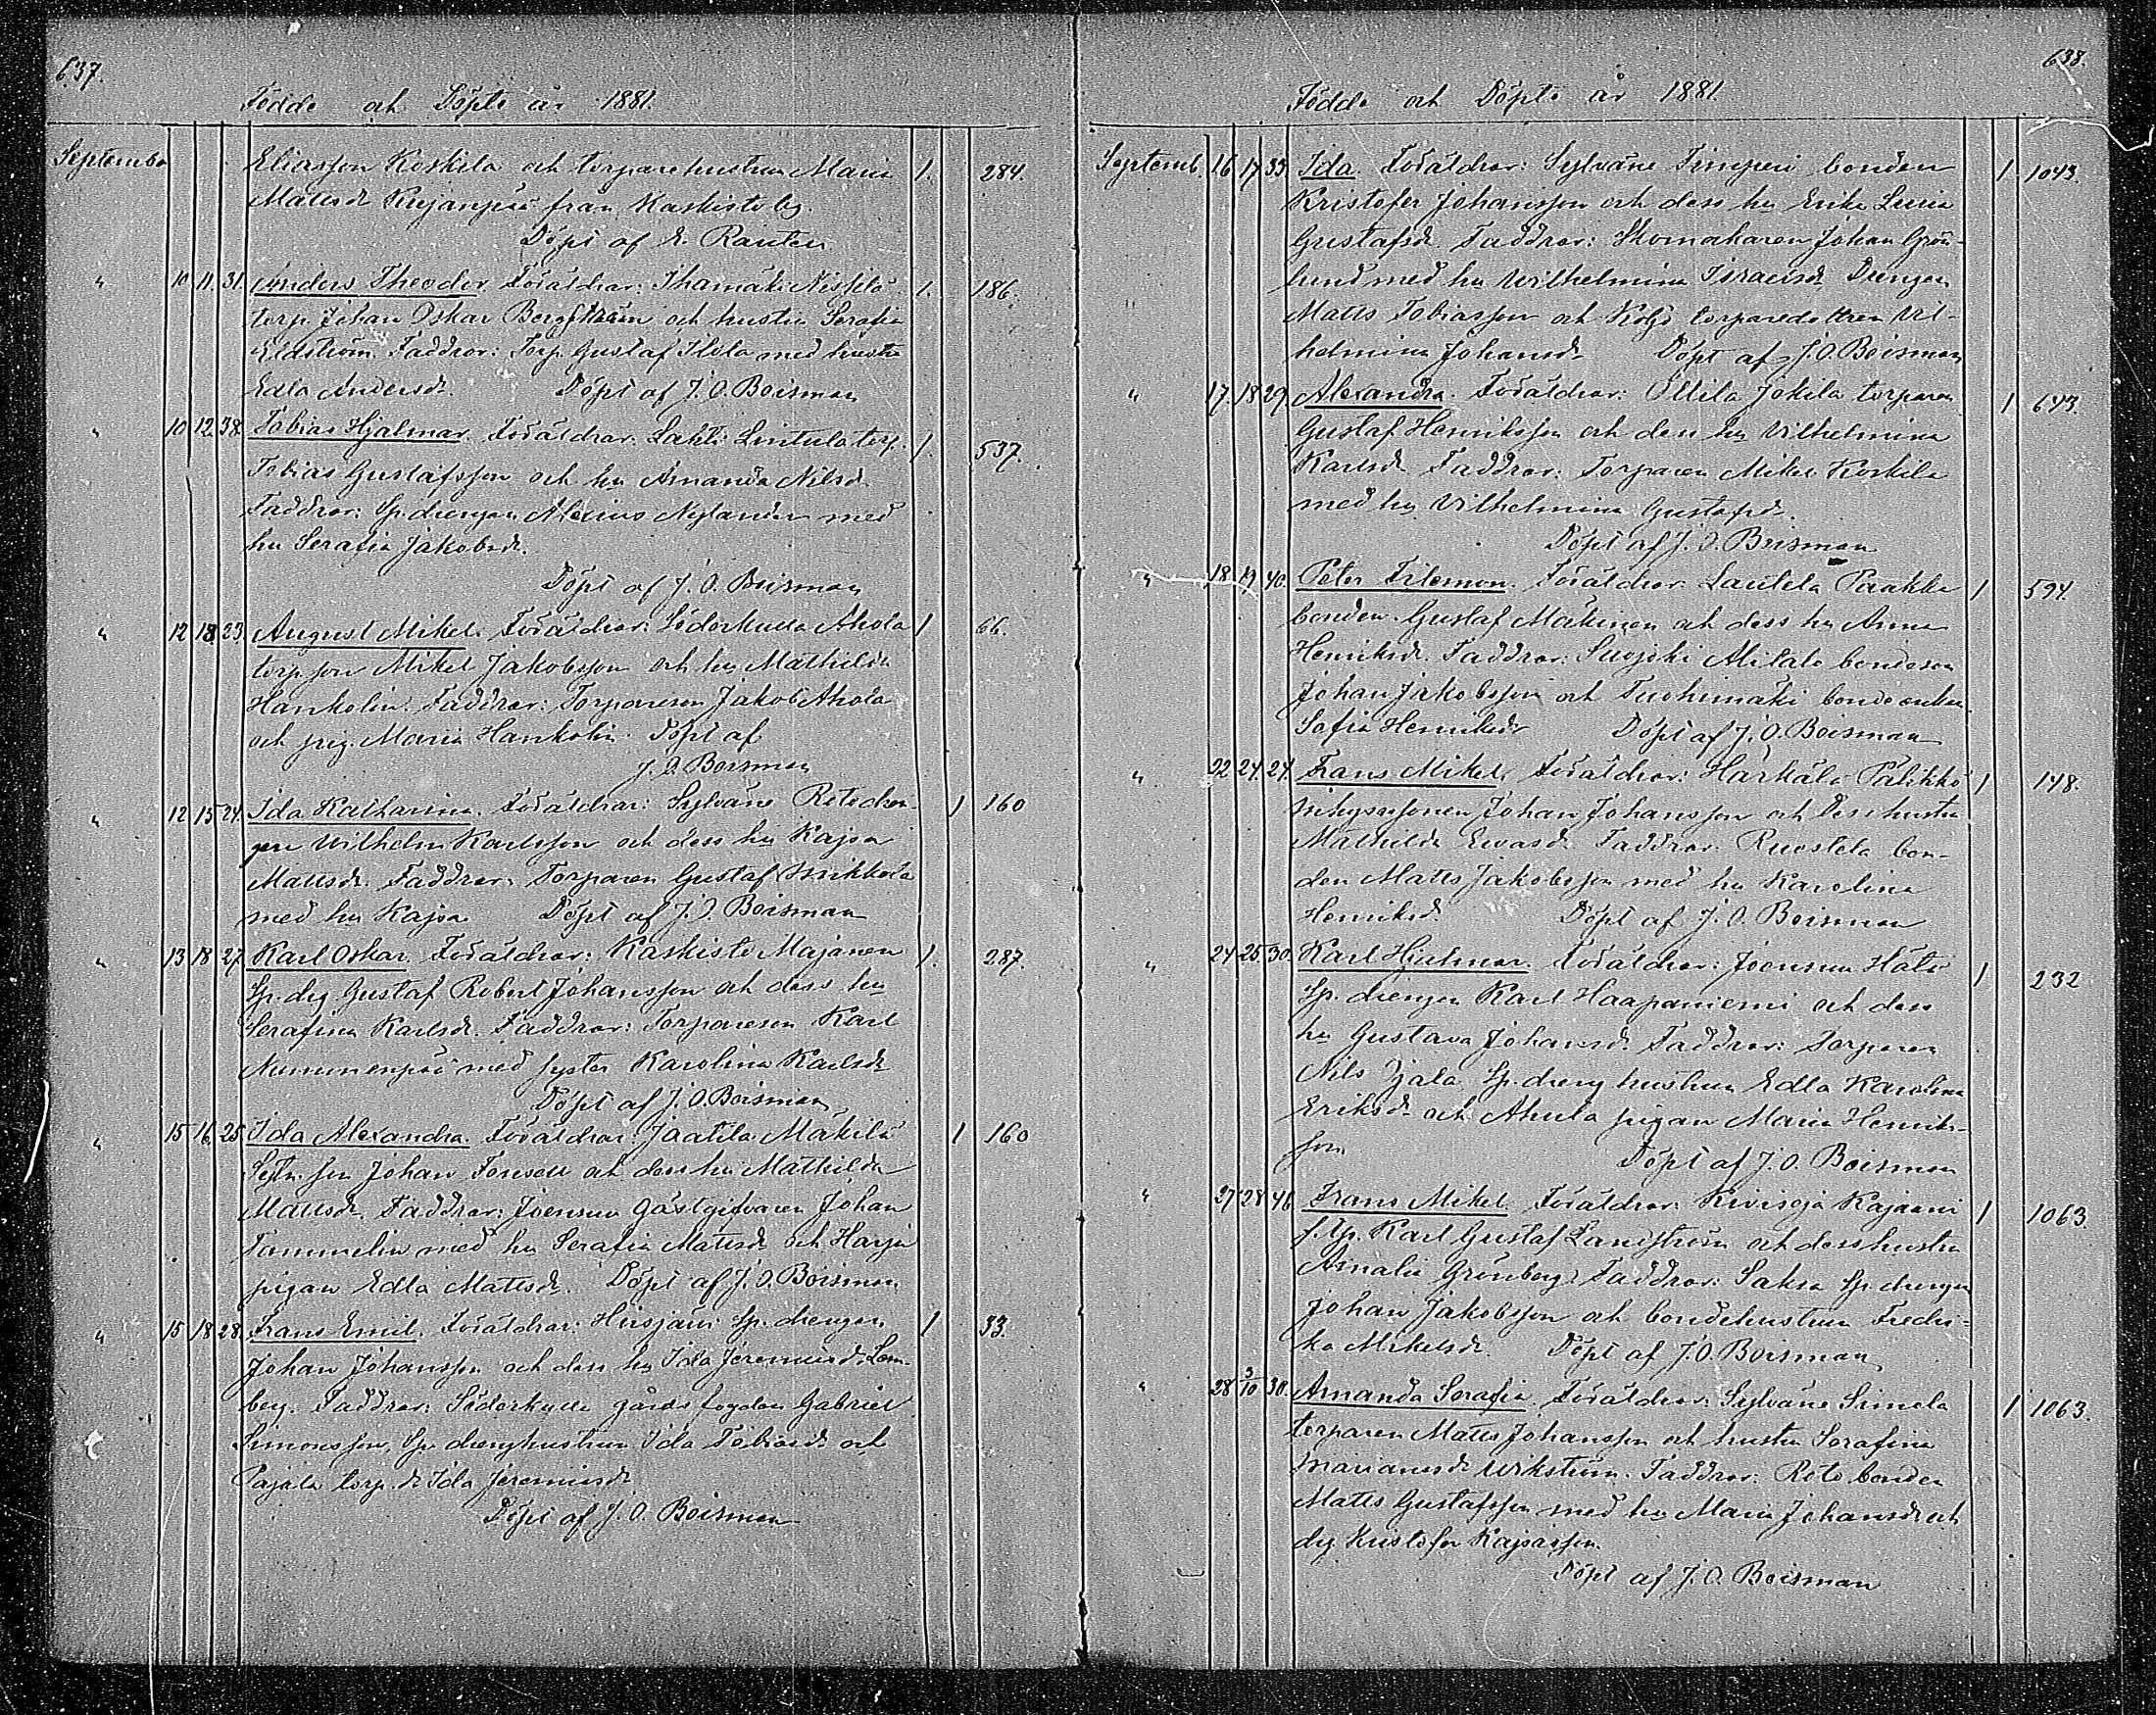 637.
Födde och Döpte år 1881.
September
Eliasson Koskela och torparehustrun Maria 1. 284.
Mattsdr Kujanpää från Kaskisto by.
Döpt af E. Rauten
" 10 11. 31. Anders Theodor. Föräldrar: Ihamäki Nissilä 1. 186.
torp. Johan Oskar Bergström och hustru Serafia
Eldström. Faddrar: Torp. Gustaf Ilola med hustru
Edla Andersdr. Döpt af J. O. Boisman
" 10 12. 38. Tobias Hjalmar. Föräldrar: Lahti Lintula torp. 1. 537.
Tobias Gustafsson och hu Amanda Nilsdr.
Faddrar: Sp. drengen Alexius Nylander med
hu Serafia Jakobsdr.
Döpt af J. O. Boisman
" 12 18. 23. August Mikel. Föräldrar: Söderkulla Ahola 1 66.
torp. son Mikel Jakobsson och hu Mathilda
Hankolin. Faddrar: Torpareson Jakob Ahola
och pig. Maria Hankolin. Döpt af
J. O. Boisman
" 12 15 24. Ida Katharina. Föräldrar: Sylväne Reto dren- 1 160
gen Wilhelm Karlsson och dess hu Kajsa
Mattsdr. Faddrar: Torparen Gustaf Mikkola
med hu Kajsa Döpt af J. O. Boisman
" 13 18 27. Karl Oskar. Föräldrar: Kaskisto Majanen 1. 287.
Sp. drg. Gustaf Robert Johansson och dess hu
Serafina Karlsdr. Faddrar: Torpareson Karl
Nummenpää med syster Karolina Karlsdr
Döpt af J. O. Boisman
" 15 16. 25. Ida Alexandra. Föräldrar: Jaatila Mäkilä 1 160
son Johan och dess hu Mathilda
Mattsdr. Faddrar: Joensuu Gästgifvaren Johan
Tammelin med hu Serafia Mattsdr och Harju
pigan Edla Mattsdr. Döpt af J. O. Boisman
" 15 18 28. Frans Emil. Föräldrar: Hirsjärvi Sp. drengen 1 33.
Johan Johansson och dess hu Ida Jeremiasdr Lem-
berg. Faddrar: Söderkulla gårdsfogden Gabriel
Simonsson, Sp. drenghustrun Ida Tobiasdr och
Pajula torp. dr Ida Jeremiasdr
Döpt af J. O. Boisman
638.
Födde och Döpte år 1881.
Septemb. 16 17 33. Ida. Föräldrar: Sylväne Timperi bonden 1 1043.
Kristofer Johansson och dess hu Erika Lovisa
Gustafsdr. Faddrar: Skomakaren Johan Grön-
lund med hu Wilhelmina Israelsdr Drengen
Matts Tobiasson och Koljo torparedottren Vil-
helmina Johansdr Döpt af J. O. Boisman
" 17. 18 29. Alexandra. Föräldrar: Ollila Jokela torparen 1 643.
Gustaf Henriksson och dess hu Vilhelmina
Karlsdr. Faddrar: Torparen Mikel Koskela
med hu Vilhelmina Gustafsdr.
Döpt af J. O. Boisman
" 18 19 40. Peter Filemon. Föräldrar: Lautela Paakka 1 594.
bonden Gustaf Mäkinen och dess hu Anna
Henriksdr. Faddrar: Suojoki Alitalo bondeson
Johan Jakobsson och Tuohimäki bondeenkan
Sofia Henriksdr Döpt af J. O. Boisman
" 22 24. 24. Frans Mikel. Föräldrar: Härkälä Pälikkö 1 148.
inhysessonen Johan Johansson och dess hustru
Mathilda Evasdr. Faddrar: Ruostela bon-
den Matts Jakobsson med hu Karolina
Henriksdr. Döpt af J. O. Boisman
" 24 25 30. Karl Hjalmar. Föräldrar: Joensuu 1 232
Sp. drengen Karl Haapaniemi och dess
hu Gustava Johansdr. Faddrar: Torparen
Nils Sp. dreng hustrun Edla Karolina
Eriksdr och Ahola pigan Maria Henriks-
son
Döpt af J. O. Boisman
" 27 28 46 Frans Mikel. Föräldrar: Kivioja Kajaani 1 1063.
f. Karl Gustaf Landström och dess hustru
Amalia Grönberg. Faddrar: Saksa Sp. drengen
Johan Jakobsson och bondehustrun Fredri-
ka Mikelsdr. Döpt af J. O. Boisman
" 28 3/10 30. Amanda Serafia. Föräldrar: Sylväne Simola 1 1063.
torparen Matts Johansson och hustru Serafina
Marianusdr Wikström. Faddrar: Reto bonden
Matts Gustafsson med hu Maria Johansdr och
drg Kristofer Kajsasson.
Döpt af J. O. Boisman